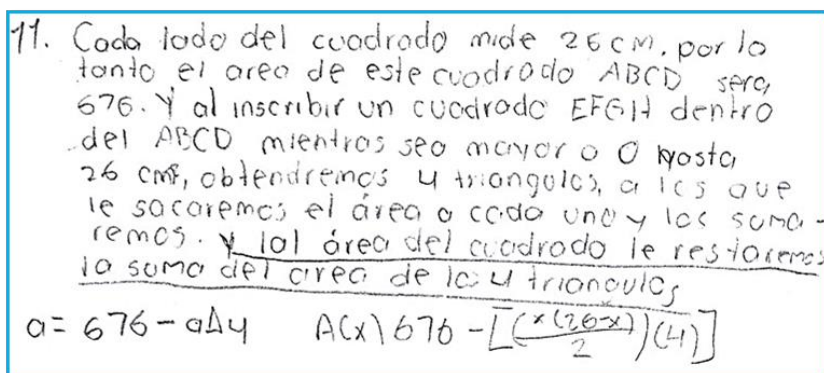 11. Cada lado del cuadrado mide 26 cm, por lo
tanto el area de este cuadrado ABCD sera
676. Y al inscribir un cuadrado EFGH dentro
del ABCD mientras sea mayor a 0 hasta
26 cm, obtendremos 4 triangulos, a los que
le sacaremos el área a cada uno y los suma-
remos. Y lal área del cuadrado le restaremos
la suma del area de los 4 triangulos
a = 676 - aΔ4 A(x) 676 - [(x(26-x)/2)(4)]